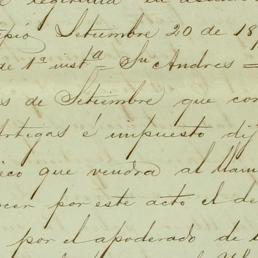 Setiembre 20 de 18
de 1ª instª = Sn Andres =
s de Setiembre que con
Artegas é impuesto di
ico que vendra al llam
cer por este acto el de
por el apoderado de